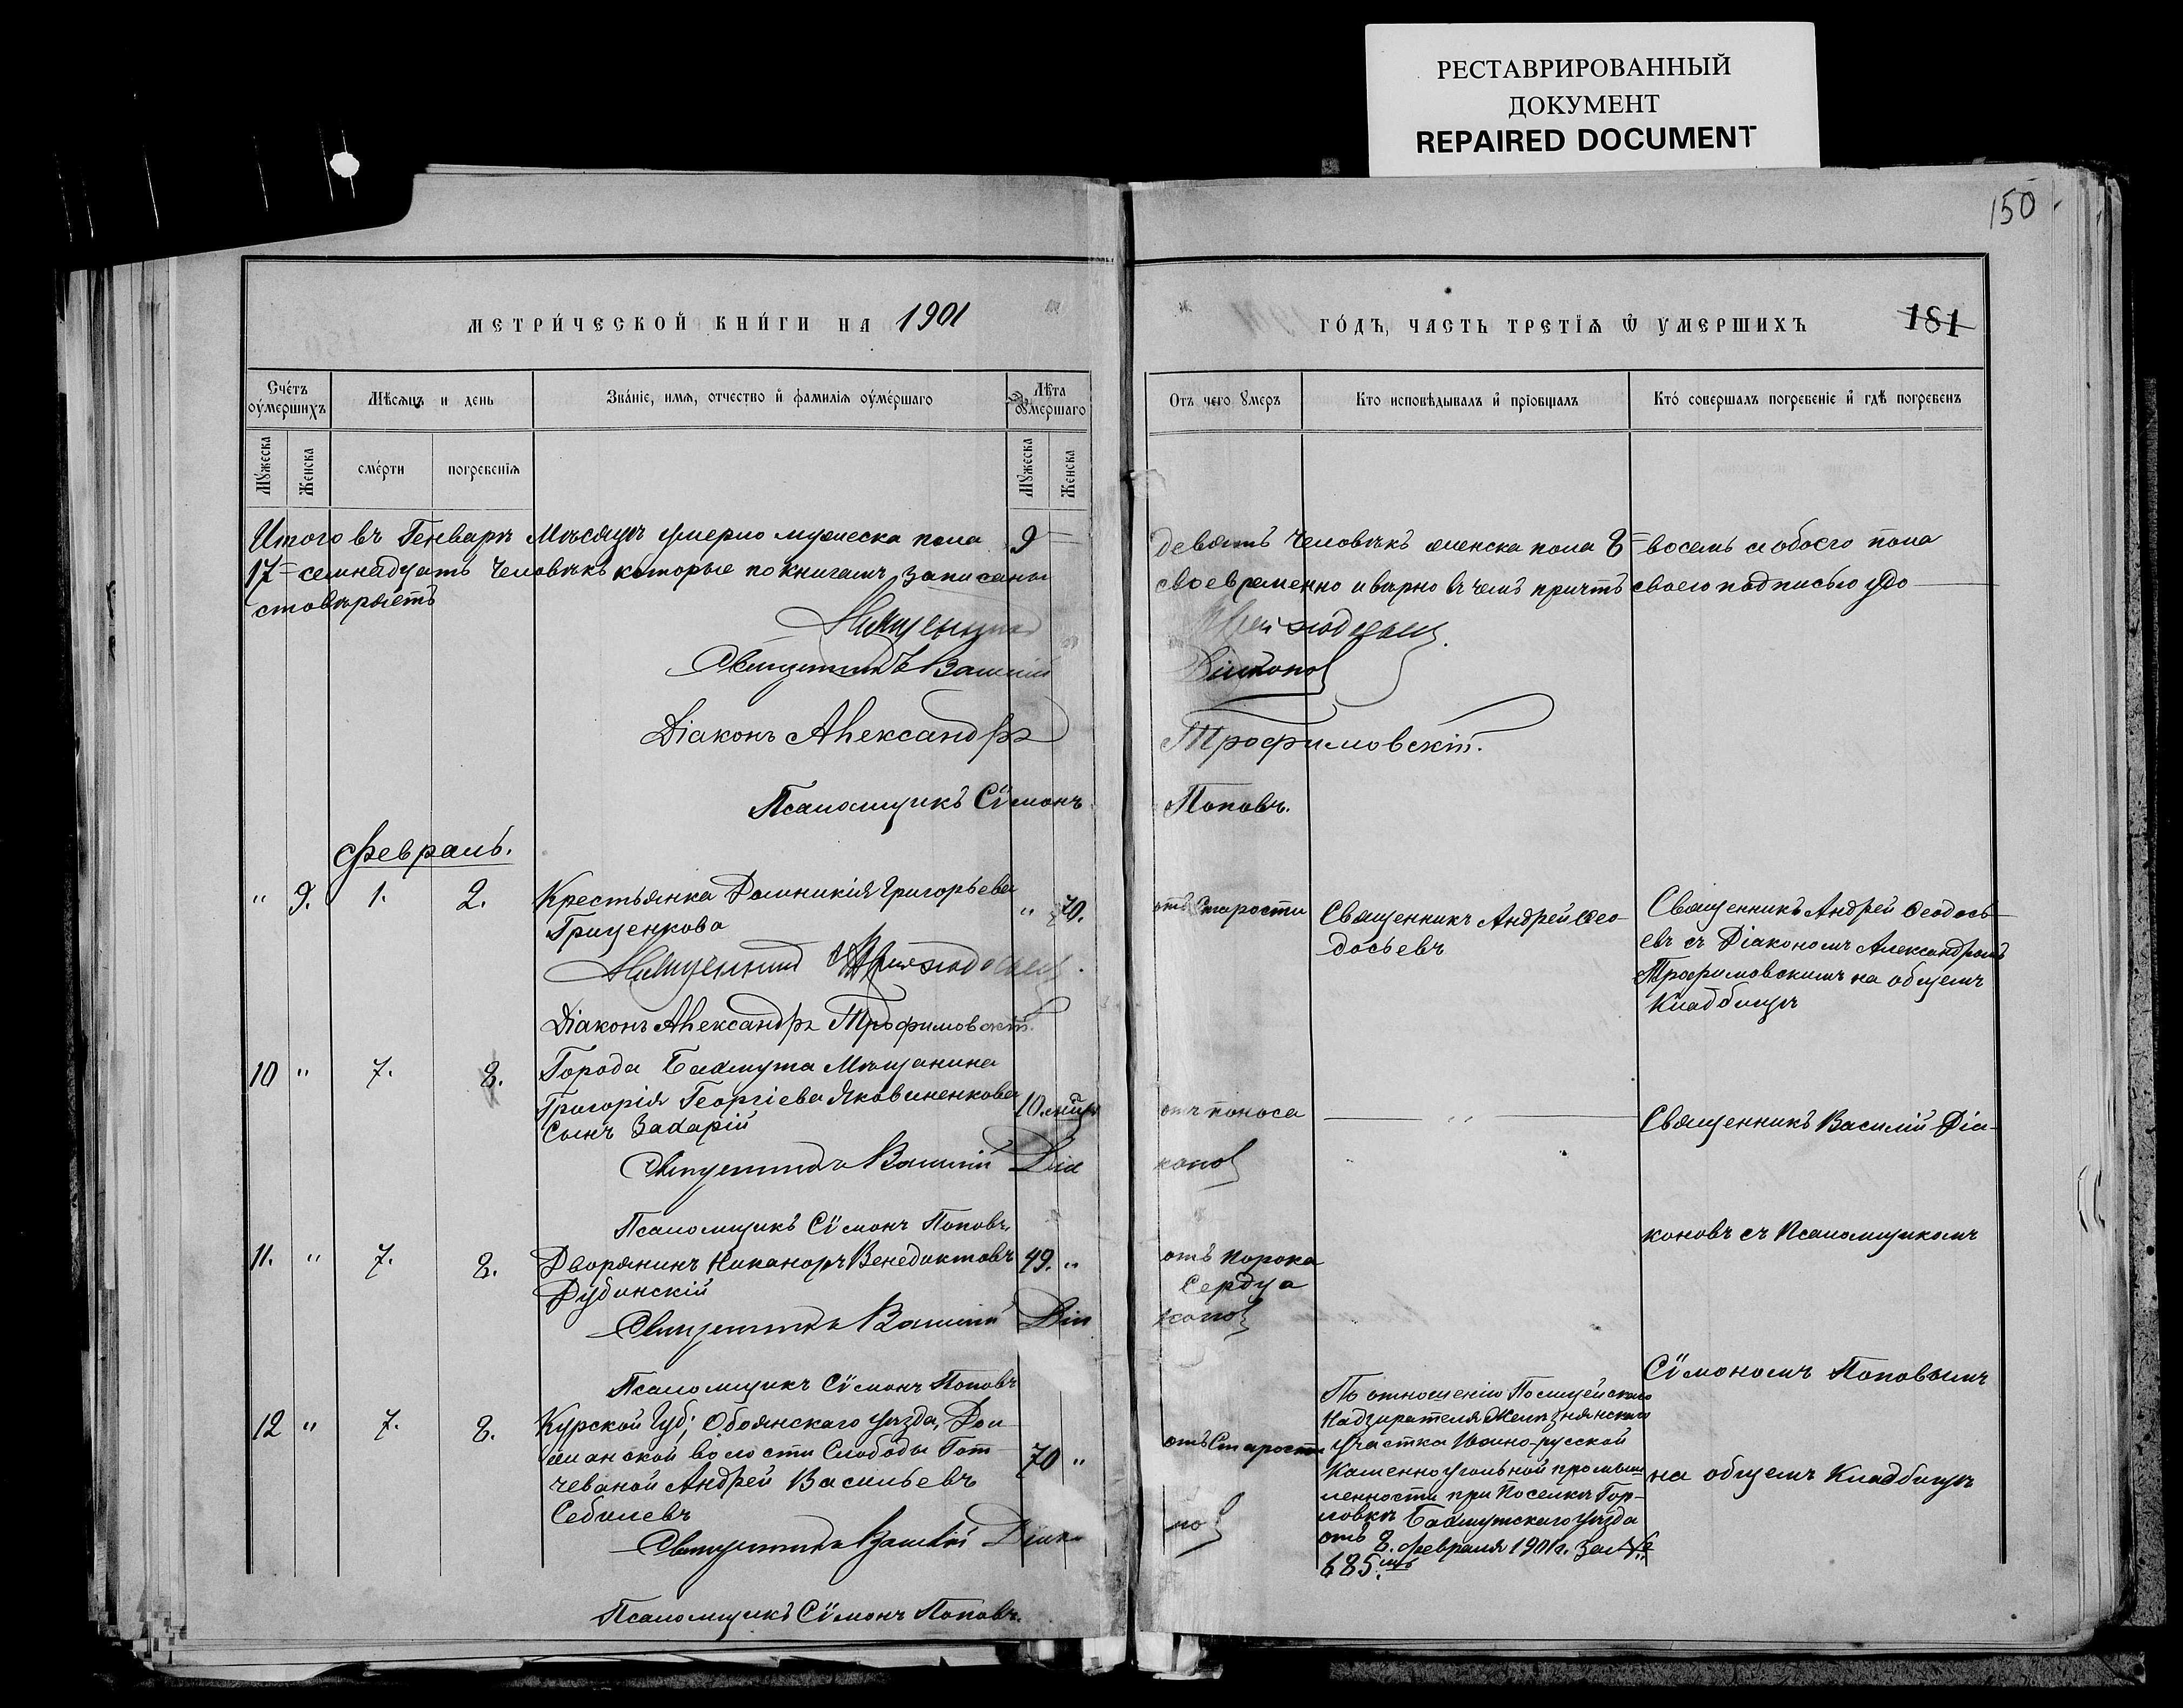 РЕСТАВРИРОВАННЫЙ
ДОКУМЕНТ
REPAIRED DOCUMENT
150
МЕТРИ́ЧЕСКОЙ КНИ́ГИ НА 1901
ГО́ДЪ, ЧАСТЬ ТРЕТІЯ Ѿ УМЕРШИХЪ
181
Счетъ оумершихъ
Мѣсяцъ и день
Званіе, имя, отчество и фамилія оумершаго
Лѣта оумершаго
Отъ чего умеръ
Кто исповѣдывалъ и пріобщалъ
Кто совершалъ погребеніе и гдѣ погребенъ
Мужеска
Женска
смерти
погребенія
Мужеска
Женска
Итого въ Генварѣ Мѣсяцѣ умерло мужеска пола 9= девять человѣкъ женска пола 8= восемь и обоего пола
17= семнадцать человѣкъ которые по книгамъ записаны своевременно и вѣрно въ чемъ причтъ своею подписью удо
стовѣряетъ
Священникъ Василій Діаконов
Діаконъ Александръ Трофимовскій.
Псаломщикъ Сѵмонъ Поповъ.
Февраль.
" 9. 1. 2. Крестьянка Домникія Григорьева
Гриценкова
" 70.
отъ Старости
Священникъ Андрей Ѳео-
досьевъ
Священникъ Андрей Ѳеодось-
евъ съ Діакономъ Александромъ
Трофимовскимъ на общемъ
Кладбищѣ
Діаконъ Александръ Трофимовскій.
10 " 7. 8. Города Бахмута Мѣщанина
Григорія Георгіева Яковиненкова
Сынъ Захарій
10.
отъ поноса
"
Священникъ Василій Діа-
Священникъ Василій Діаконов
Псаломщикъ Сѵмонъ Поповъ.
коновъ съ Псаломщикомъ
11. " 7. 8. Дворянинъ Никаноръ Венедиктовъ
Дубинскій
49. "
отъ порока
Сердца
Священникъ Василій Діаконов
Псаломщикъ Сѵмонъ Поповъ
Сѵмономъ Поповымъ
12 " 7. 8. Курской Губ; Обоянскаго уѣзда,
волости Слободы
Андрей Васильевъ
70 "
отъ Старости
По отношенію Полицейскаго
Надзирателя
участка Южно-русской
Каменноугольной промыш
ленности при Поселкѣ Гор-
ловкѣ Бахмутскаго уѣзда
отъ 8. февраля 1901г. за №
685.
на общемъ Кладбищѣ
Священникъ Василій Діаконов
Псаломщикъ Сѵмонъ Поповъ.